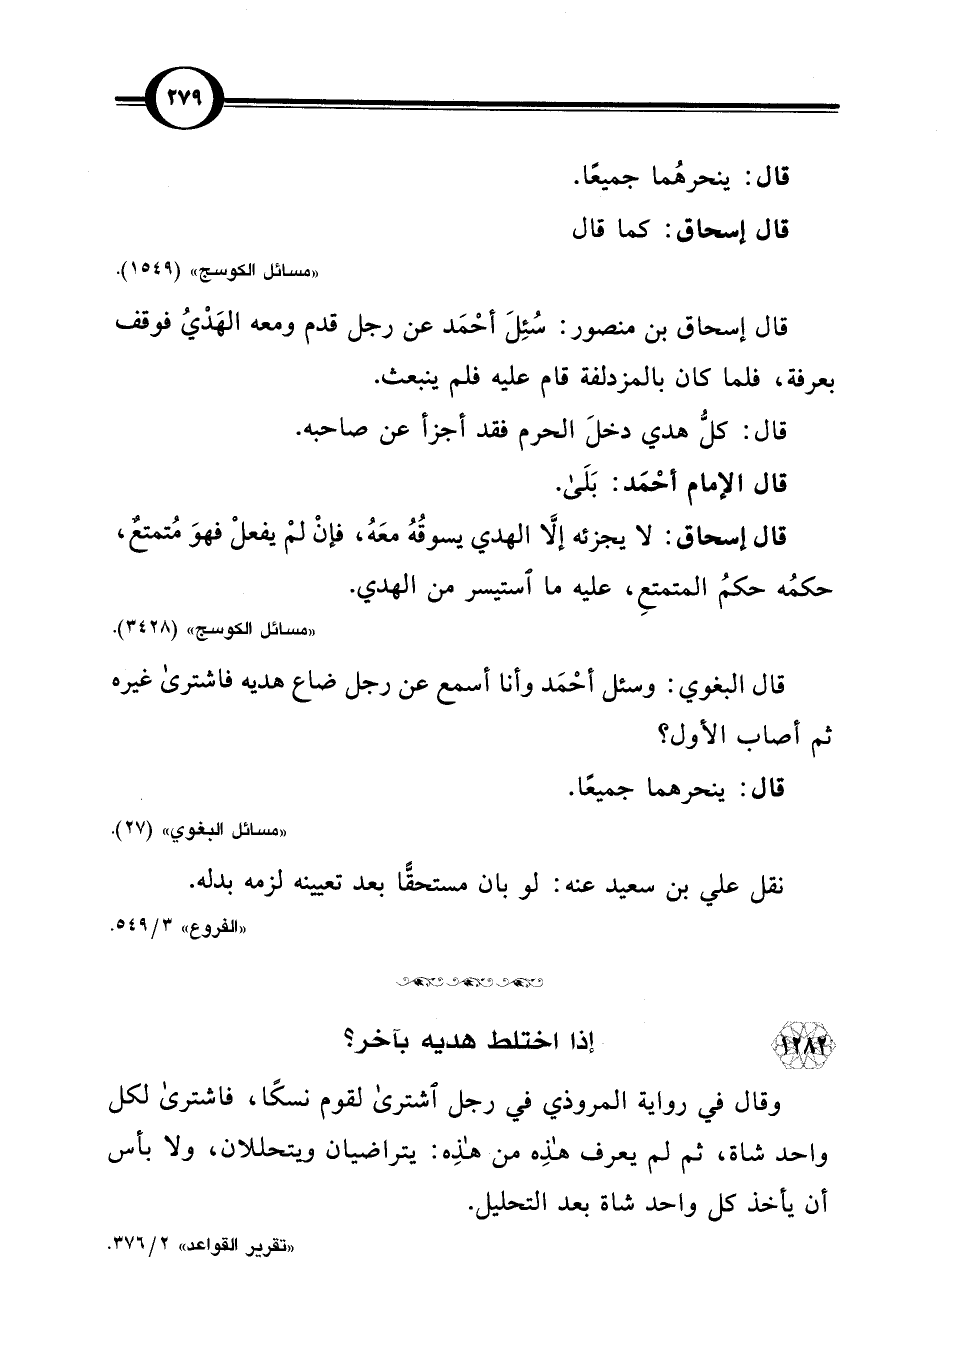 ٢٧٩
قال: ينحرهُما جميعًا.
قال إسحاق: كما قال
«مسائل الكوسج» (١٥٤٩).
قال إسحاق بن منصور: سُئِلَ أحْمَد عن رجل قدم ومعه الهَدْيُ فوقف
بعرفة، فلما كان بالمزدلفة قام عليه فلم ينبعث.
قال: كلُّ هدي دخلَ الحرم فقد أجزأ عن صاحبه.
قال الإمام أحْمَد: بَلَىٰ.
قال إسحاق: لا يجزئه إلَّا الهدي يسوقُهُ معَهُ، فإنْ لمْ يفعلْ فهوَ مُتمتعٌ،
حكمُه حكمُ المتمتعِ، عليه ما ٱستيسر من الهدي.
«مسائل الكوسج» (٣٤٢٨).
قال البغوي: وسئل أحْمَد وأنا أسمع عن رجل ضاع هديه فاشترىٰ غيره
ثم أصاب الأول؟
قال: ينحرهما جميعًا.
«مسائل البغوي» (٢٧).
نقل علي بن سعيد عنه: لو بان مستحقًّا بعد تعيينه لزمه بدله.
«الفروع» ٥٤٩/٣.
١٢٨٢ إذا اختلط هديه بآخر؟
وقال في رواية المروذي في رجل ٱشترىٰ لقوم نسكًا، فاشترىٰ لكل
واحد شاة، ثم لم يعرف هٰذِه من هٰذِه: يتراضيان ويتحللان، ولا بأس
أن يأخذ كل واحد شاة بعد التحليل.
«تقرير القواعد» ٣٧٦/٢.